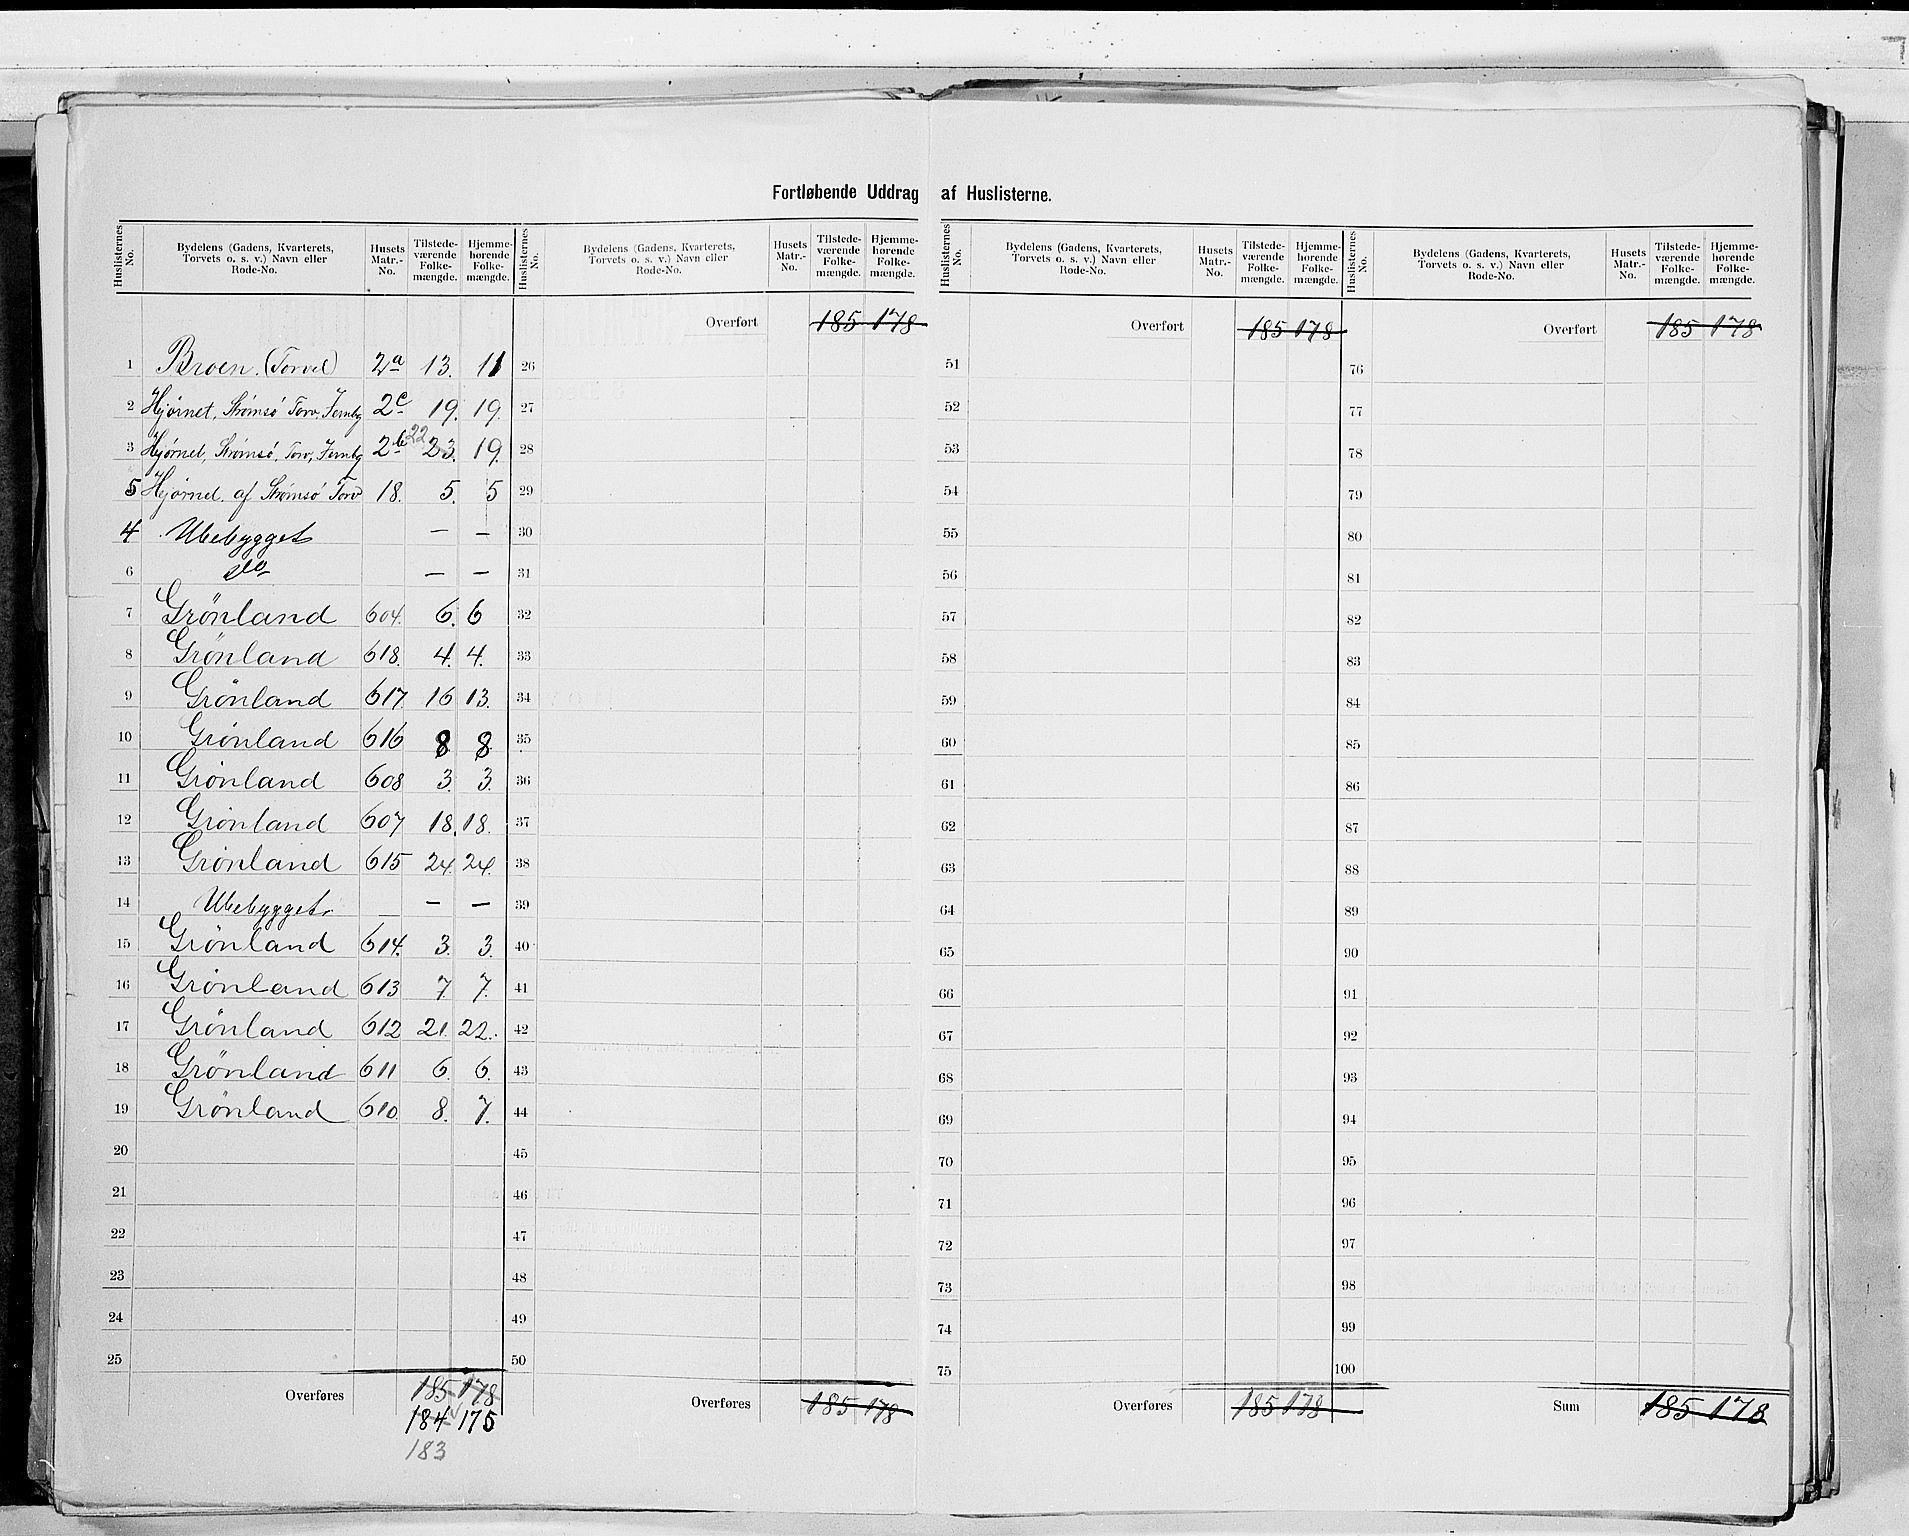 Fortløbende Uddrag af Huslisterne.
Huslisternes No. | Bydelens (Gadens, Kvarterets, Torvets o. s. v.) Navn eller Rode-No. | Husets Matr.-No. | Tilstedeværende Folkemængde. | Hjemmehørende Folkemængde.
1 Broen. (Torvet) 2a 13. 11
2 Hjørnet, Strømsø Torv, Jernbg 2c 19. 19.
3 Hjørnet, Strømsø, Torv, Jernbg 2b 22 23. 19.
5 Hjørnet af Strømsø Torv 18. 5. 5
4 Ubebygget — —
6 do — —
7 Grönland 604. 6. 6
8 Grönland 618. 4. 4.
9 Grönland 617 16 13.
10 Grönland 616 8 8.
11 Grönland 608 3. 3.
12 Grönland 607 18. 18.
13 Grönland 615 24. 24.
14 Ubebygget. — —
15 Grönland 614. 3. 3.
16 Grönland 613 7 7.
17 Grönland 612 21. 22.
18 Grönland 611 6. 6.
19 Grönland 610. 8. 7.
20
21
22
23
24
25
Overføres 185 178
184 175
183
Huslisternes No. | Bydelens (Gadens, Kvarterets, Torvets o. s. v.) Navn eller Rode-No. | Husets Matr.-No. | Tilstedeværende Folkemængde. | Hjemmehørende Folkemængde.
Overført 185 178
26
27
28
29
30
31
32
33
34
35
36
37
38
39
40
41
42
43
44
45
46
47
48
49
50
Overføres 185 178
Huslisternes No. | Bydelens (Gadens, Kvarterets, Torvets o. s. v.) Navn eller Rode-No. | Husets Matr.-No. | Tilstedeværende Folkemængde. | Hjemmehørende Folkemængde.
Overført 185 178
51
52
53
54
55
56
57
58
59
60
61
62
63
64
65
66
67
68
69
70
71
72
73
74
75
Overføres 185 178
Huslisternes No. | Bydelens (Gadens, Kvarterets, Torvets o. s. v.) Navn eller Rode-No. | Husets Matr.-No. | Tilstedeværende Folkemængde. | Hjemmehørende Folkemængde.
Overført 185 178
76
77
78
79
80
81
82
83
84
85
86
87
88
89
90
91
92
93
94
95
96
97
98
99
100
Sum 185 178